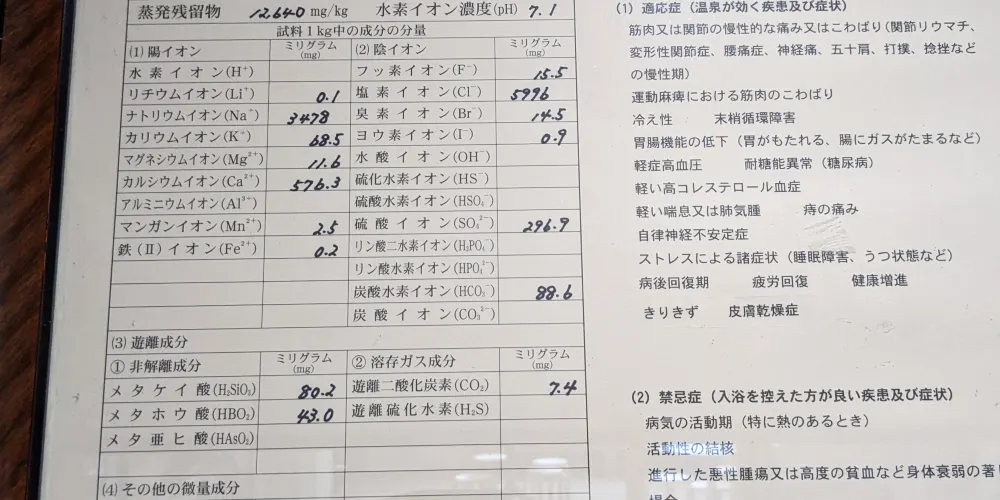 蒸発残留物 12640 mg/kg 水素イオン濃度(pH) 7.1
試料1kg中の成分の分量
(1) 陽イオン ミリグラム(mg) (2) 陰イオン ミリグラム(mg)
水素イオン(H⁺) フッ素イオン(F⁻) 15.5
リチウムイオン(Li⁺) 0.1 塩素イオン(Cl⁻) 5996
ナトリウムイオン(Na⁺) 3478 臭素イオン(Br⁻) 14.5
カリウムイオン(K⁺) 68.5 ヨウ素イオン(I⁻) 0.9
マグネシウムイオン(Mg²⁺) 11.6 水酸イオン(OH⁻)
カルシウムイオン(Ca²⁺) 576.3 硫化水素イオン(HS⁻)
アルミニウムイオン(Al³⁺) 硫酸水素イオン(HSO₄⁻)
マンガンイオン(Mn²⁺) 2.5 硫酸イオン(SO₄²⁻) 296.9
鉄(Ⅱ)イオン(Fe²⁺) 0.2 リン酸二水素イオン(H₂PO₄⁻)
リン酸水素イオン(HPO₄²⁻)
炭酸水素イオン(HCO₃⁻) 88.6
炭酸イオン(CO₃²⁻)
(3) 遊離成分
① 非解離成分 ミリグラム(mg) ② 溶存ガス成分 ミリグラム(mg)
メタケイ酸(H₂SiO₃) 80.2 遊離二酸化炭素(CO₂) 7.4
メタホウ酸(HBO₂) 43.0 遊離硫化水素(H₂S)
メタ亜ヒ酸(HAsO₂)
(4) その他の微量成分
(1) 適応症(温泉が効く疾患及び症状)
筋肉又は関節の慢性的な痛み又はこわばり(関節リウマチ、
変形性関節症、腰痛症、神経痛、五十肩、打撲、捻挫など
の慢性期)
運動麻痺における筋肉のこわばり
冷え性 末梢循環障害
胃腸機能の低下(胃がもたれる、腸にガスがたまるなど)
軽症高血圧 耐糖能異常(糖尿病)
軽い高コレステロール血症
軽い喘息又は肺気腫 痔の痛み
自律神経不安定症
ストレスによる諸症状(睡眠障害、うつ状態など)
病後回復期 疲労回復 健康増進
きりきず 皮膚乾燥症
(2) 禁忌症(入浴を控えた方が良い疾患及び症状)
病気の活動期(特に熱のあるとき)
活動性の結核
進行した悪性腫瘍又は高度の貧血など身体衰弱の著し
場合